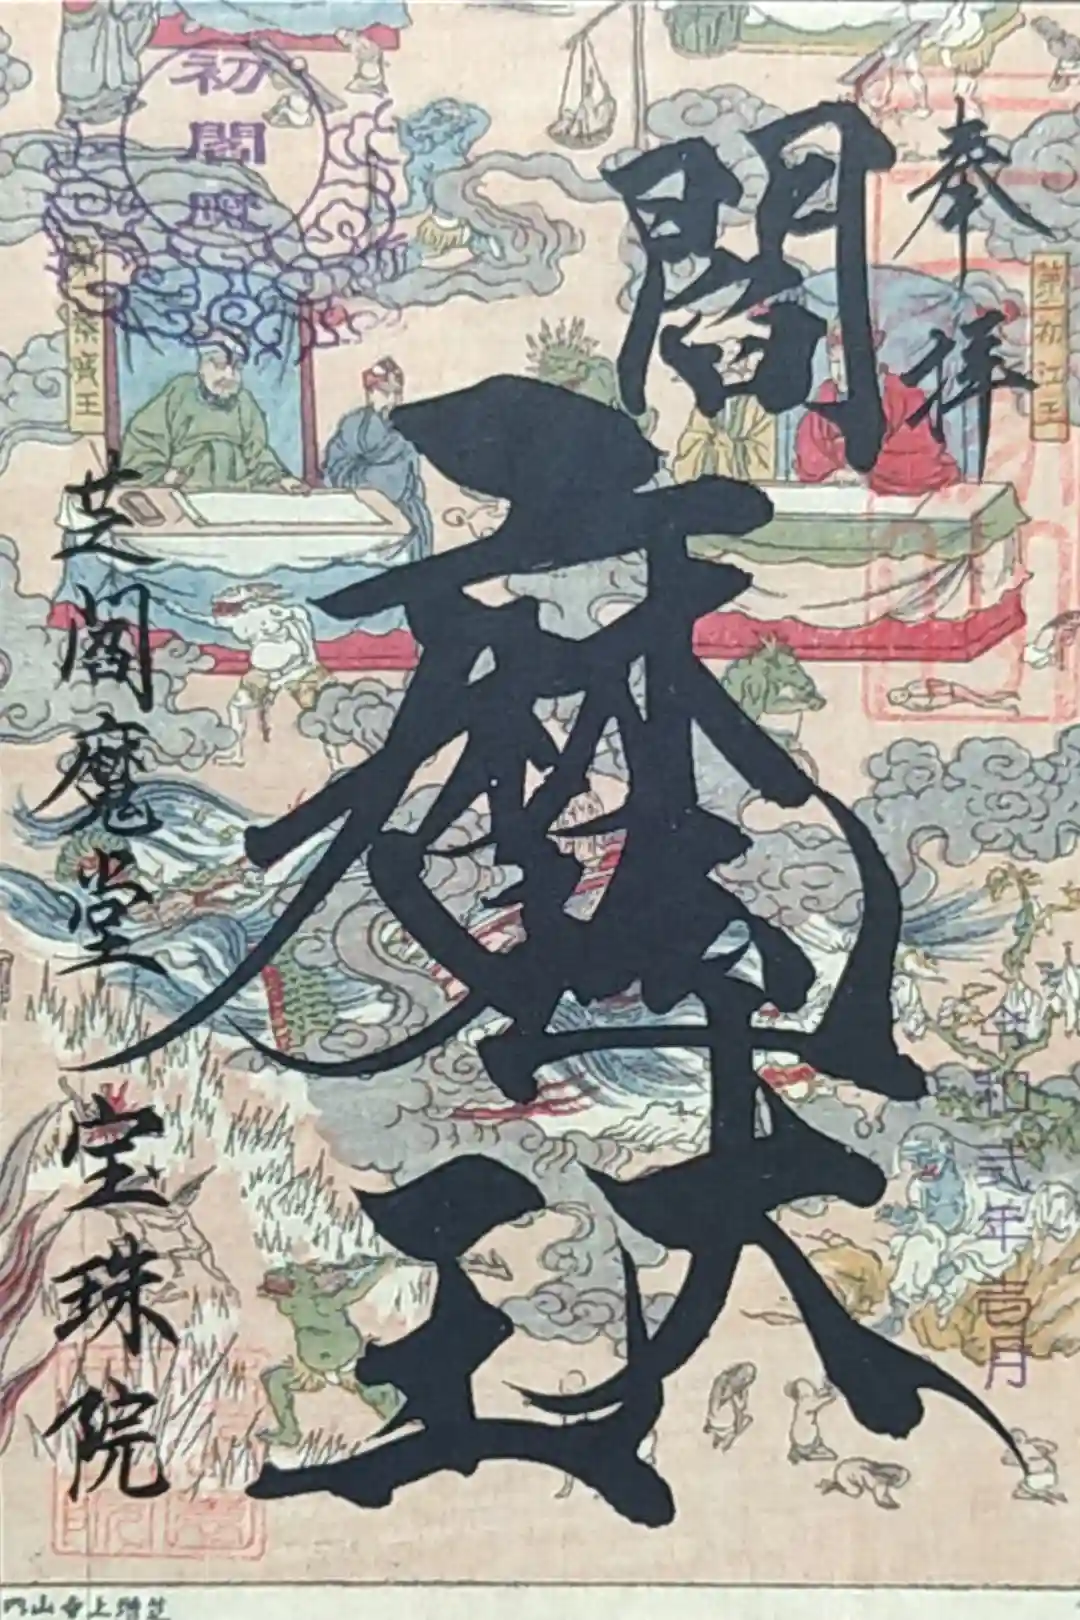 奉拝
第二初江王
令和弐年壱月
閻魔大王
初閻魔
第一秦廣王
芝閻魔堂 宝珠院
芝増上寺山内